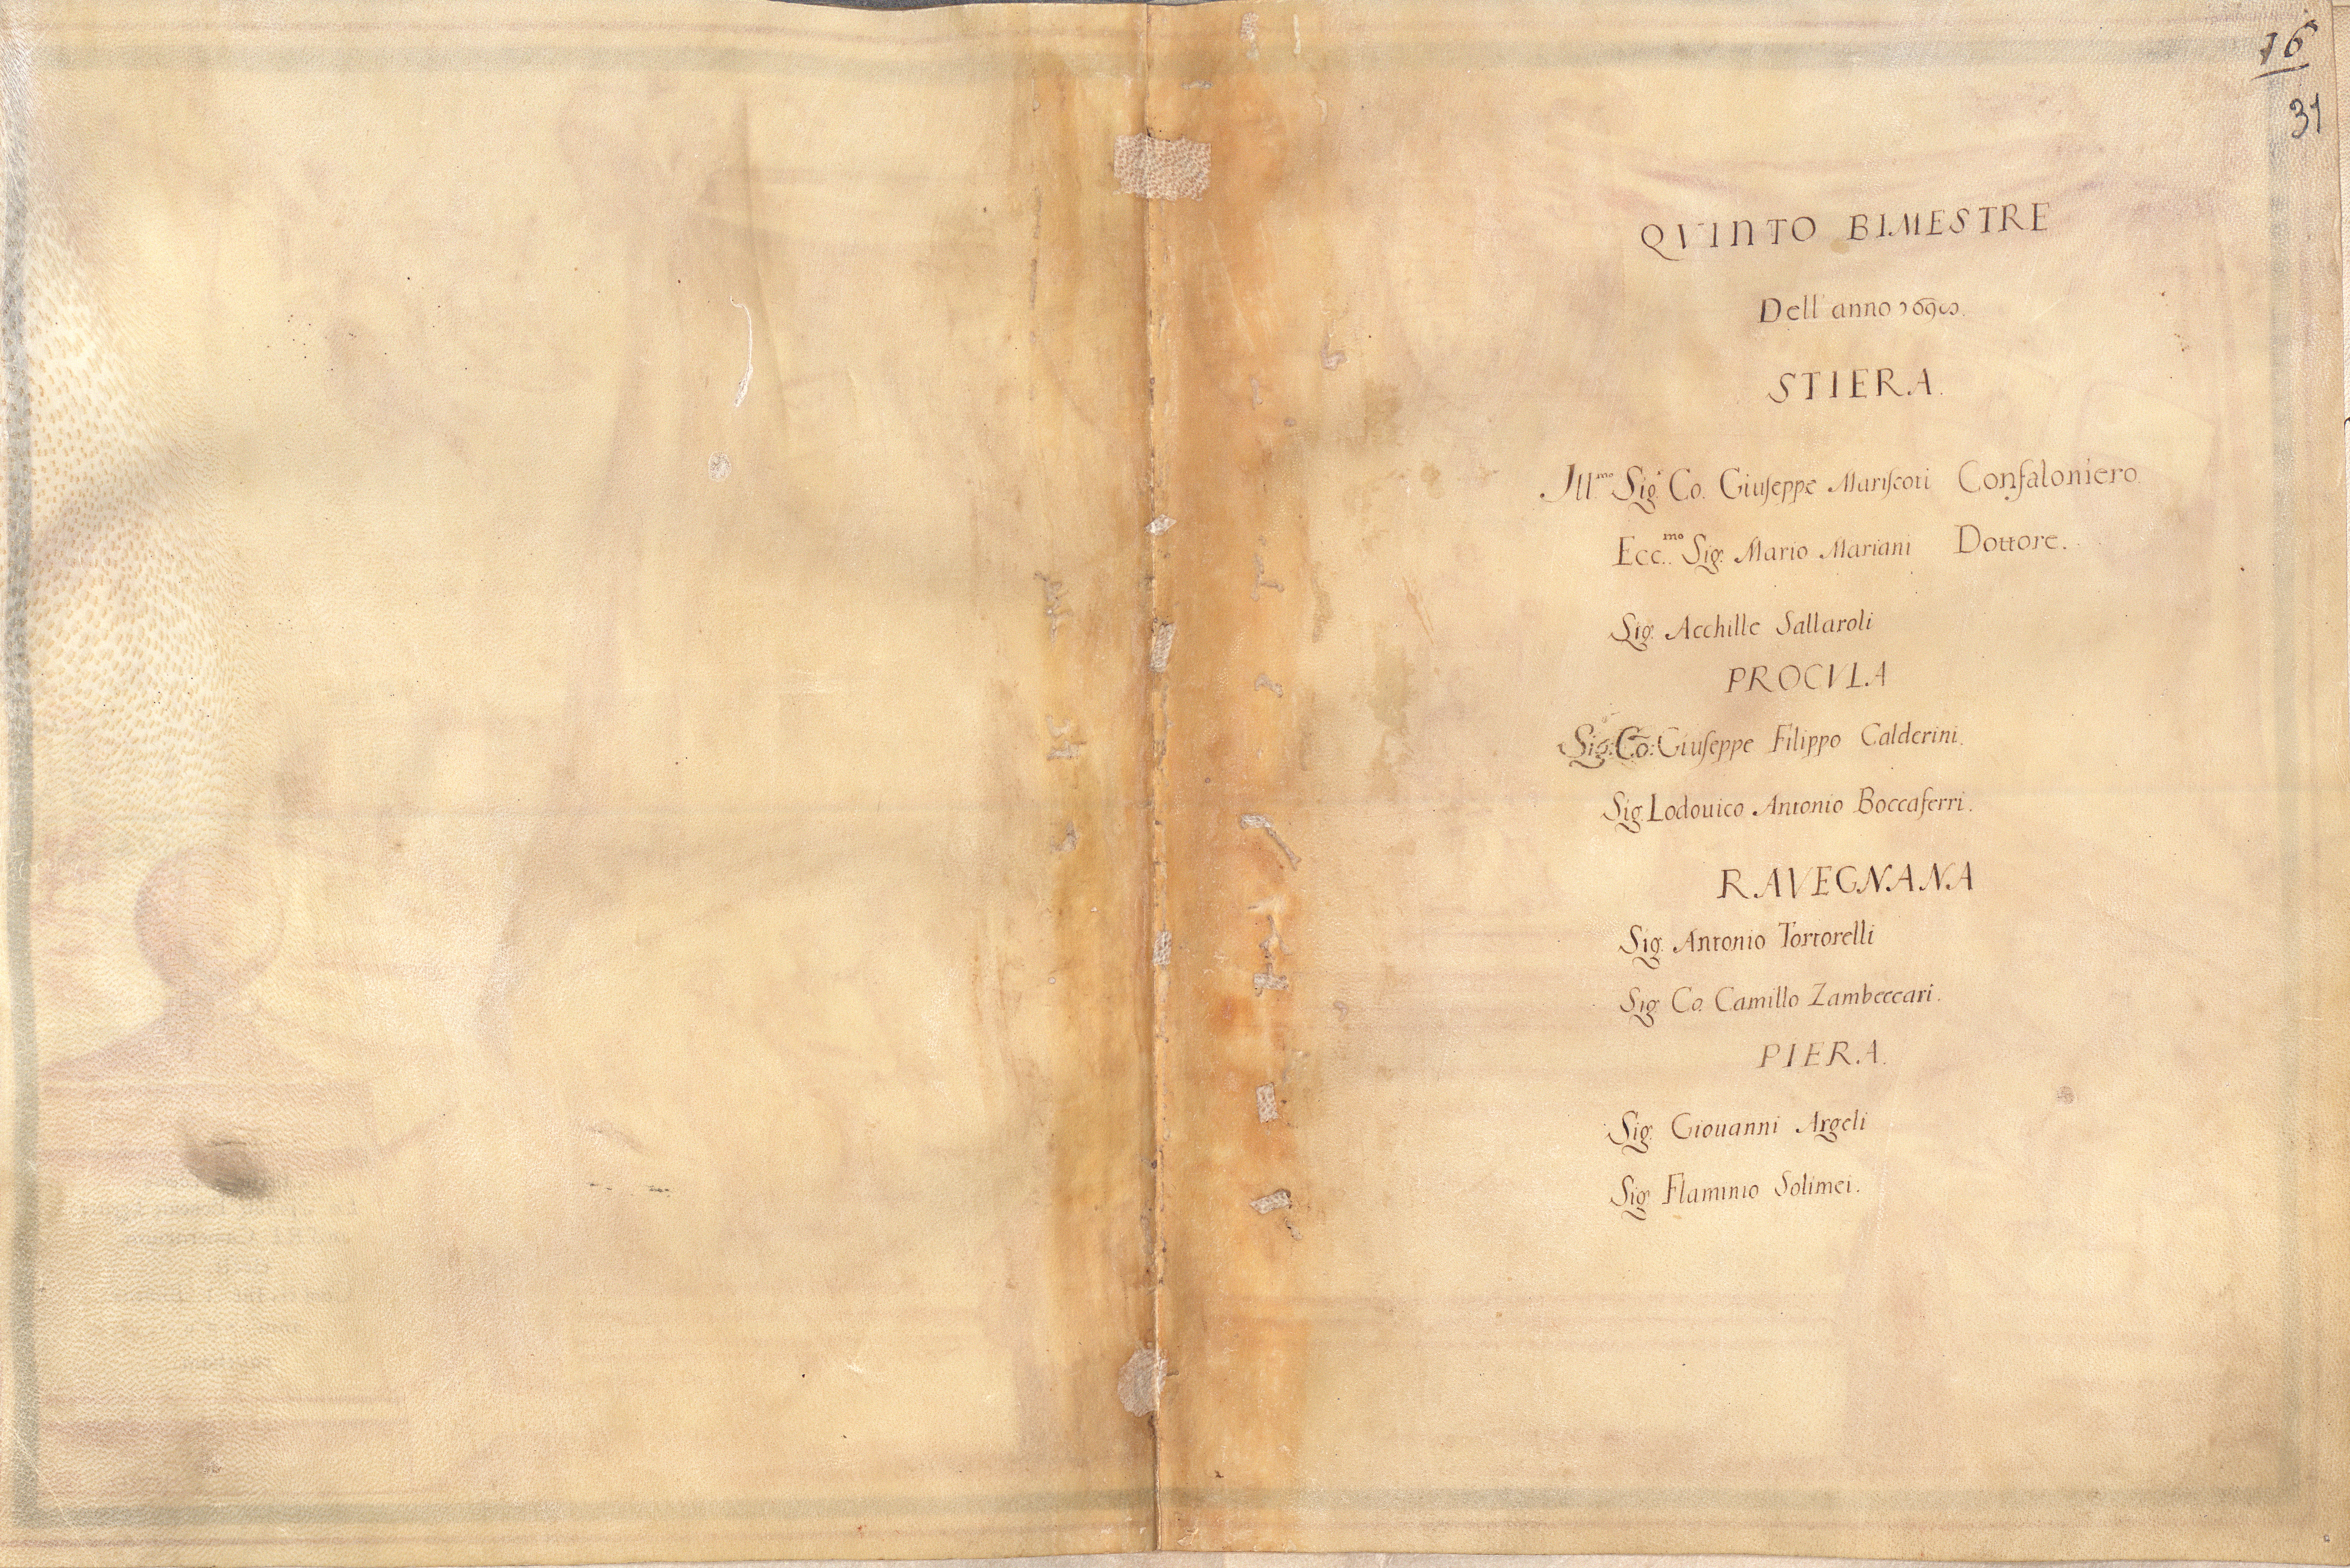 16
31
QVINTO BIMESTRE
Dell'anno 1690.
STIERA.
Ill.mo Sig.r Co. Giuseppe Mariscoti Confaloniero.
Ecc.mo Sig. Mario Mariani Dottore.
Sig. Acchille Sallaroli
PROCVLA
Sig: Co: Giuseppe Filippo Calderini.
Sig. Lodouico Antonio Boccaferri.
RAVEGNANA
Sig. Antonio Tortorelli
Sig. Co. Camillo Zambeccari.
PIERA.
Sig. Giouanni Argeli
Sig. Flaminio Solimei.